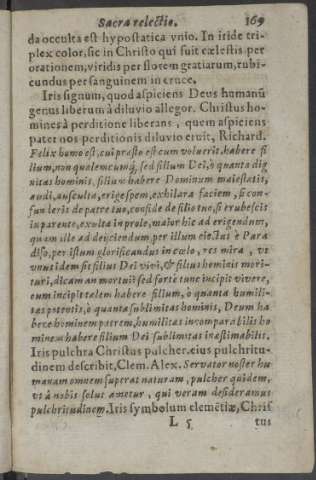 Sacra relectio. 169
da occulta est hypostatica vnio. In iride tri-
plex color, sic in Christo qui fuit cælestis per
orationem, viridis per florem gratiarum, rubi-
cundus per sanguinem in cruce.
Iris signum, quod aspiciens Deus humanũ
genus liberum à diluvio allegor. Christus ho-
mines à perditione liberans, quem aspiciens
pater nos perditionis diluvio eruit, Richard.
Felix homo est, cui præsto est cum voluerit, habere fi
lium, non qualemcumq;, sed filium Dei, ò quanta dig
nitas hominis, filium habere Dominum maiestatis,
audi, ausculta, erige spem, exhilara faciem, si con-
fun leris de patre tuo, confide de filio tuo, si erubescis
in parente, exulta in prole, maior hic ad erigendum,
quam ille ad deijciendum per illum eiectus è Para
diso, per istum glorificandus in cælo, res mira, vt
vnus idem sit filius Dei vivi, & filius hominis mori-
turi, dicam an mortui? sed forte tunc incipit vivere,
cum incipit talem habere filium, ò quanta humili-
tas potentis, ò quanta sublimitas hominis, Deum ha
bere hominem patrem, humilitas incomparabilis ho
minem habere filium Dei sublimitas inæstimabilis.
Iris pulchra Christus pulcher. eius pulchritu-
dinem describit, Clem. Alex. Servator noster hu
manam omnem superat naturam, pulcher quidem,
vt à nobis solus ametur, qui veram desideramus
pulchritudinem. Iris symbolum clemẽtiæ, Chris
L 5 tus